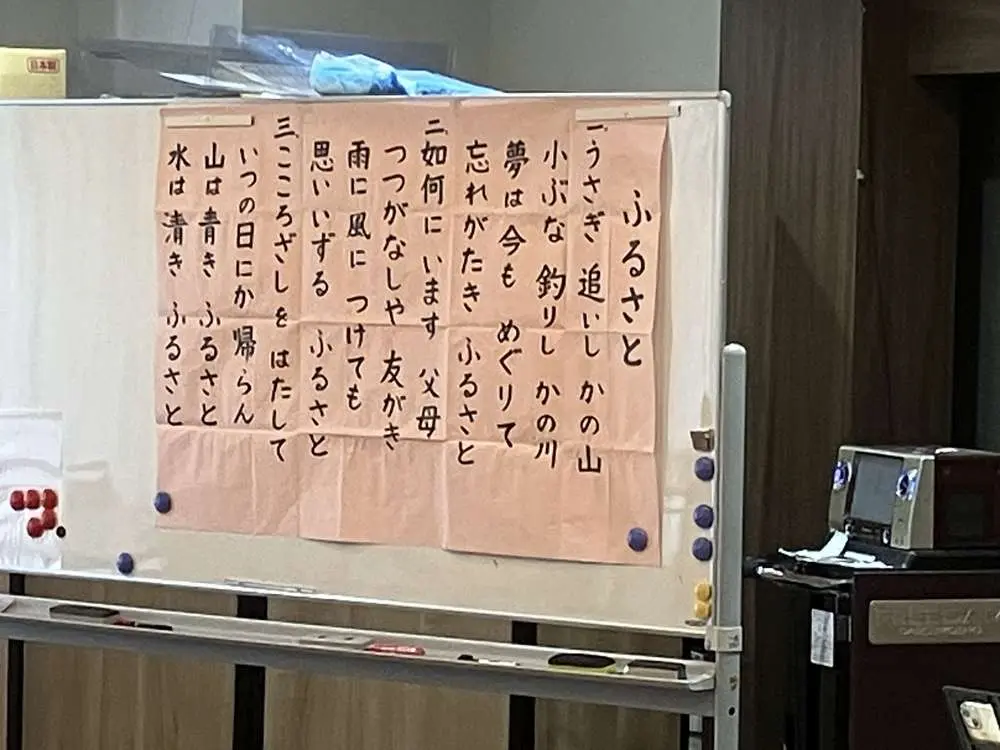 ふるさと
一、うさぎ 追いし かの山
小ぶな 釣りし かの川
夢は今も めぐりて
忘れがたき ふるさと
二、如何に います 父母
つつがなしや 友がき
雨に風に つけても
思いいずる ふるさと
三、こころざしを はたして
いつの日にか 帰らん
山は青き ふるさと
水は清き ふるさと
日本製